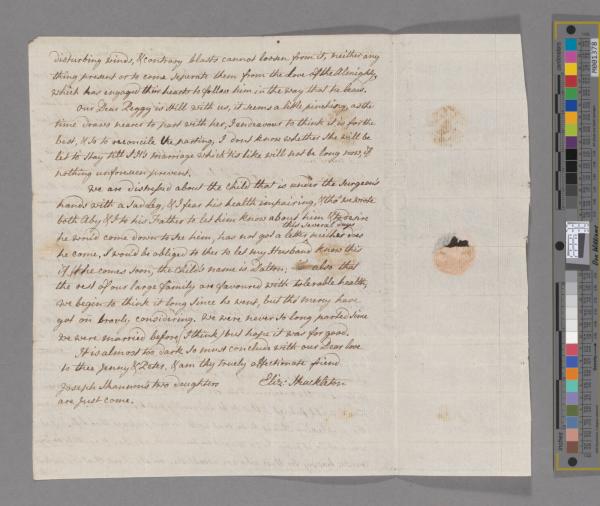 disturbing winds, & contrary blasts cannot loosen from it, neither any
thing present or to come seperate them from the love of the Almighty,
which has engaged their hearts to follow him in the way that he leads.
Our Dear Peggy is still with us, it seems a little pinching, as the
time draws nearer to part with her, I endeavour to think it is for the
best, & so to reconcile the parting, I dont know whether she will be
let to stay till marriage which tis like will not be long now, if
nothing unforeseen prevent.
We are distressed about the child that is under the Surgeon's
hands with a sad leg, & I fear his health impairing, & tho we wrote
both Aby & I to his Father to let him know about him & to desire
this several days
he would come down to see him, has not got a letter, neither does
he come, I would be obliged to thee to let my Husband know this
if he comes soon, the child's name is Dalton, also that
the rest of our large family are favoured with tolerable health,
we begin to think it long since he went, but the mercy have
got on bravly, considering. We were never so long parted since
we were married before (I think) but hope it was for good.
It is almost too dark so must conclude with our Dear love
to thee Jenny & Peter. & am thy truely affectionate friend
Joseph Shannon's two daughters Eliz: Shackleton
are just come.
M001378
inches
centimeters